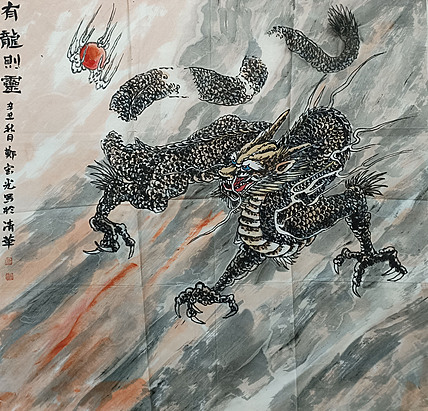 有龍則靈
辛丑秋日鄭宝光写於清華